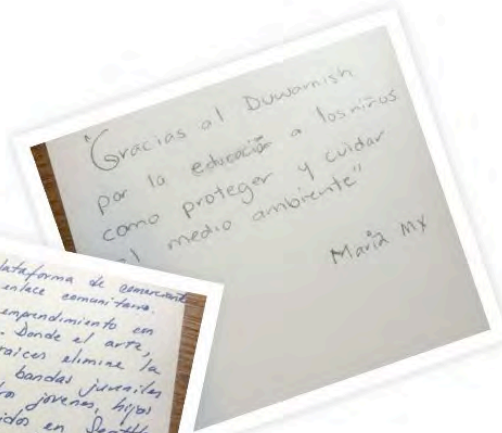 "Gracias al Duwamish
por la educación a los niños
como proteger y cuidar
el medio ambiente"
Maria MX
lataforma de comerciante
enlace comunitario.
emprendimiento en
. Donde el arte,
raices elimine la
bandas juveniles
jovenes, hijos
idos en Seattle